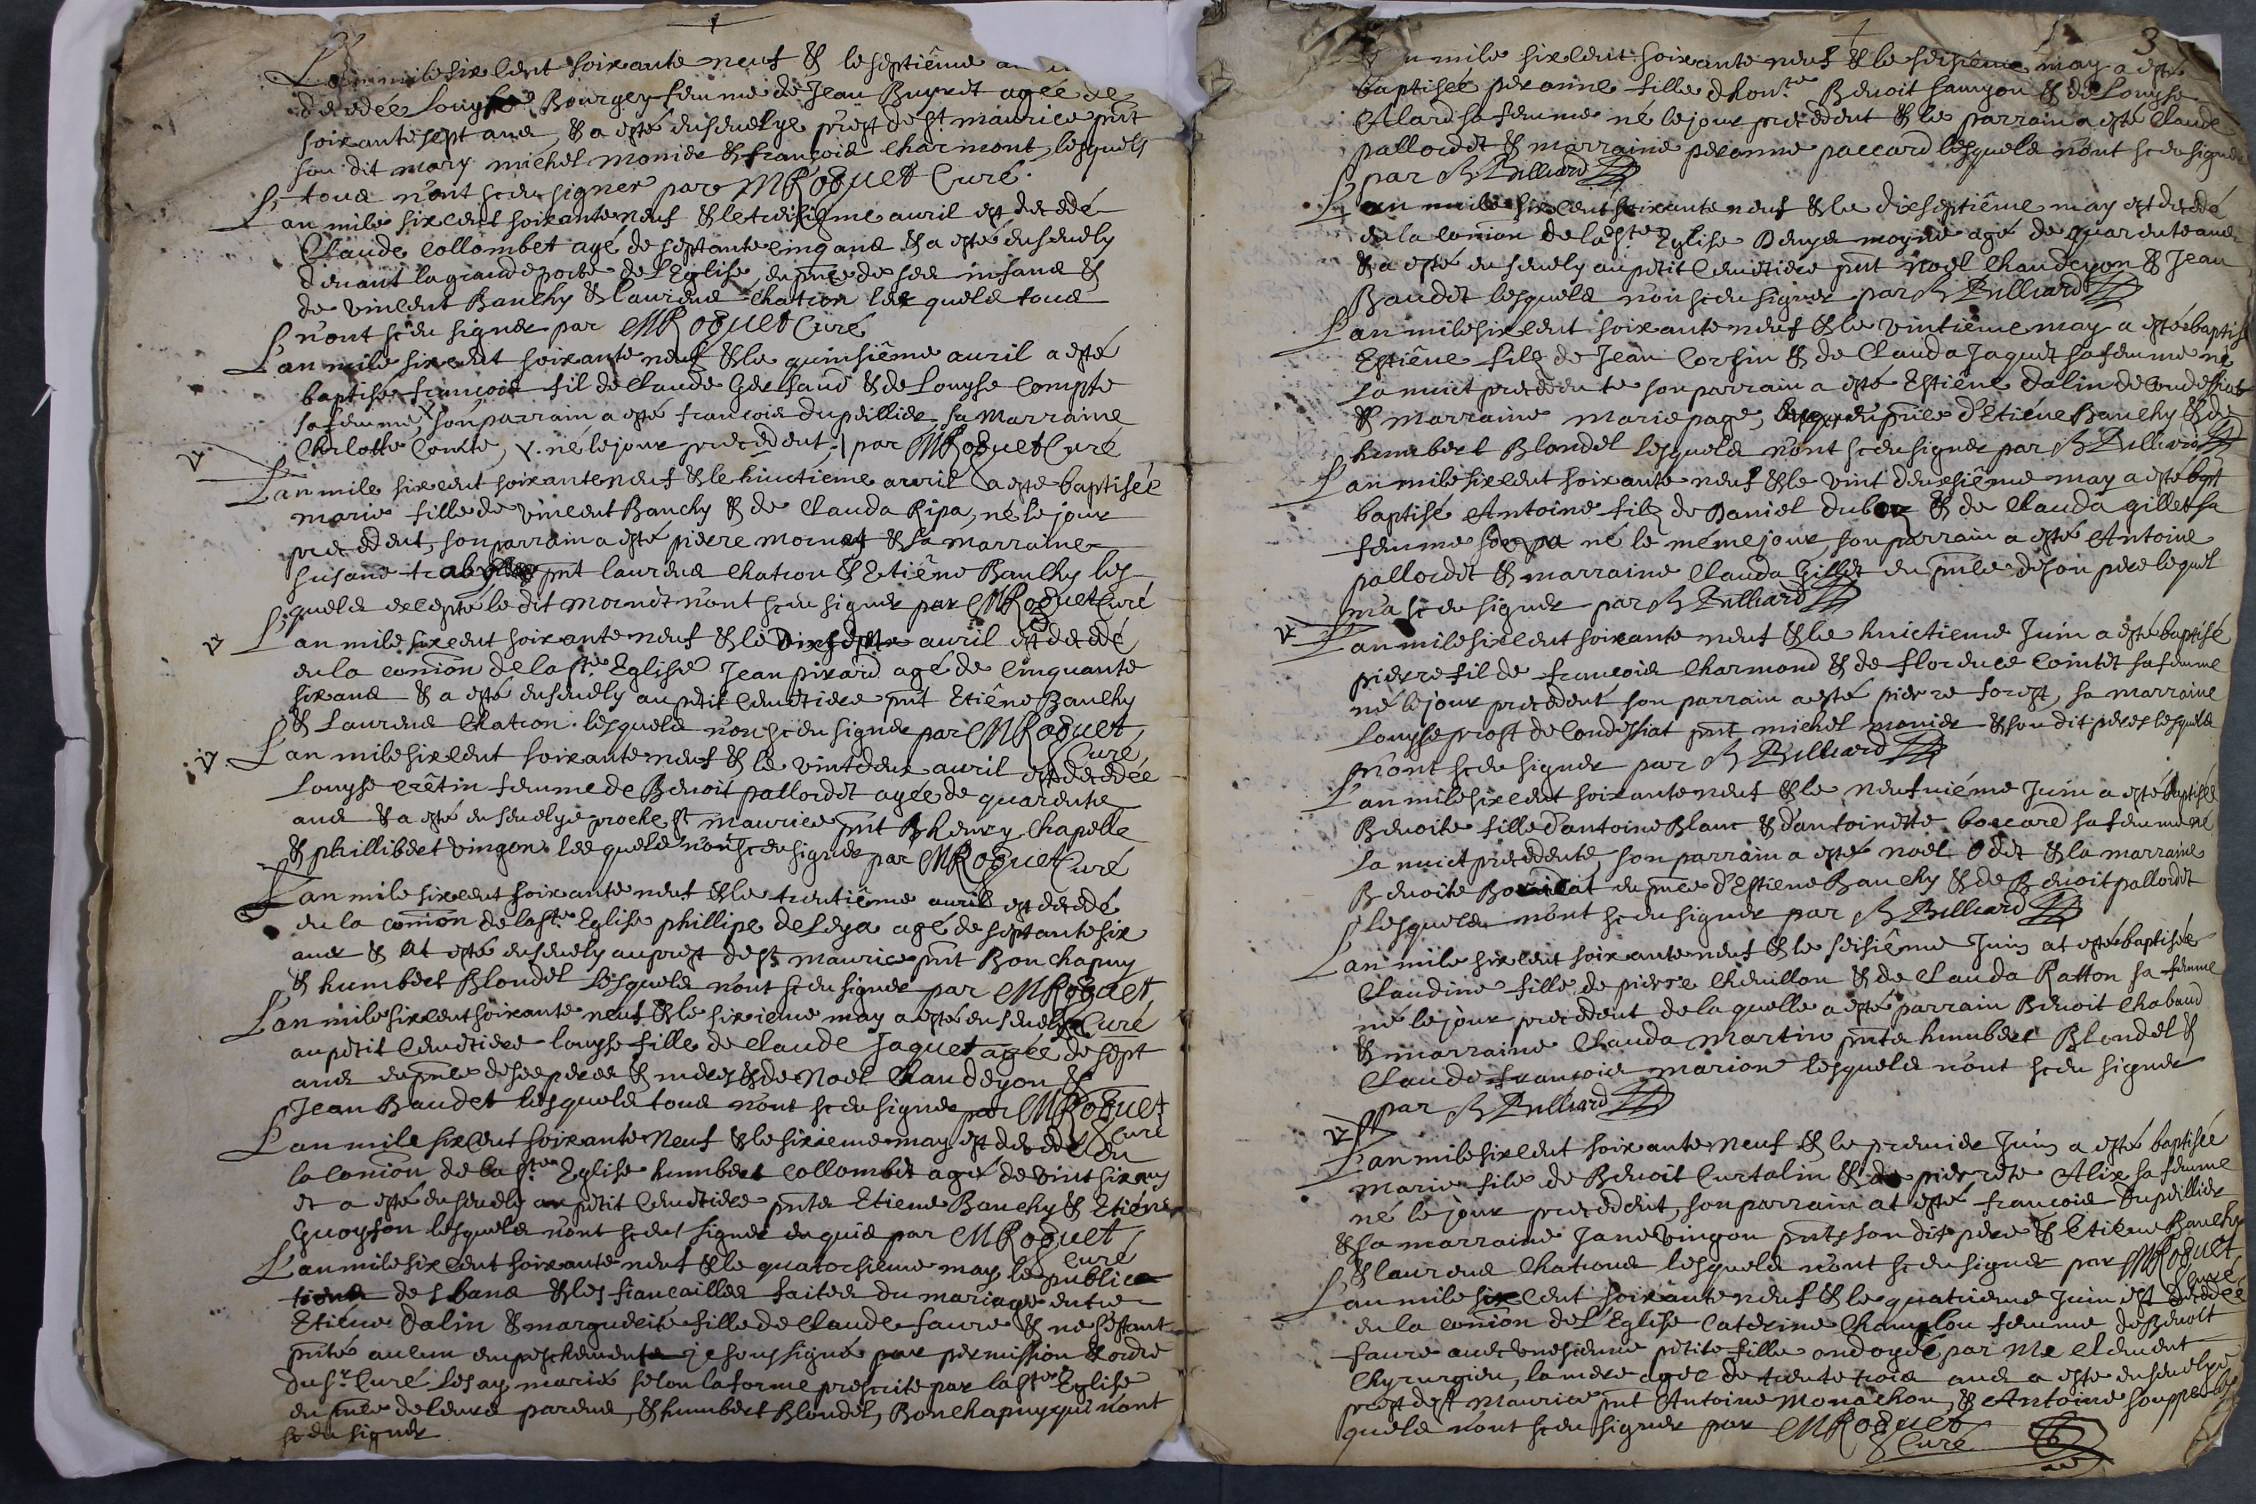 L'an mile six cent soixante neuf & le septiême
decedée Louyse Bourgey femme de Jean Buyret agée de
soixante sept ans, & a esté ensevelye prest de st maurice pnt
son dit mary michel monier & françois Charmont, lesquels
tous n'ont sceu signer par MRoguet Curé.
L'an mile six cent soixante neuf & le treisiême auril est decedé
Claude Collombet agé de septante cinq ans & a esté ensevely
deuant la grande porte de l'Eglise, en pnce de ses infans &
de vincent Banchy & laurens Chation lesquels tous
n'ont sceu signer par MRoguet Curé
L'an mile six cent soixante neuf & le quinsiême auril a esté
baptisé françois fil de Claude Gersaud & de Louyse Compte
sa femme, son parrain a esté françois dupeillier, sa Marraine
Charlotte Comte, v. né le jour precedent. par MRoguet Curé
L'an mile six cent soixante neuf & le huictieme auril a esté baptisée
marie fille de vincent Banchy & de Clauda Ripa, né le jour
precedent, son parrain a esté pierre mornet & sa marraine
susane pnt laurens Chation & Etiêne Banchy les
quels excepté le dit mornet n'ont sceu signer par MRoguet Curé
L'an mile six cent soixante neuf & le auril est decedé
en la comion de la ste Eglise Jean pirard agé de Cinquante
six ans & a esté ensevely au petit Cemetiere pnt Etiêne Banchy
& Laurens Chation. lesquels n'on sceu signer par MRoguet
Curé
L'an mile six cent soixante neuf & le vint deux auril est decedée
Louyse Crêtin femme de Benoit pallordet agée de quarente
ans & a esté ensevelye proche st maurice pnt Bhenry Chapelle
& phillibert vingon. lesquels n'ont sceu signer par MRoguet Curé
L'an mile six cent soixante neuf & le trentiême auril est decedé
en la comion de la ste Eglise phillipe de Leya agé de septante six
ans & at esté ensevely au prest de st maurice pnt Bon chapuy
& humbert Blondel Lesquels n'ont sceu signer par MRoguet
Curé
L'an mile six cent soixante neuf & le sixieme may a esté ensevely
au petit Cemetiere louyse fille de Claude Jaquet agée de sept
ans en pnce de ses peres & meres & de Noel Chandeyon &
Jean Baudet lesquels tous n'ont sceu signer par MRoguet
Curé
L'an mile six cent soixante Neuf & le sixieme may est decedé en
la Comion de la ste Eglise humbert Collombet agé de vint six ans
et a esté ensevely au petit Cemetiere pnts Etiene Banchy & Etiêne
Guoyson lesquels n'ont sceut signer enquis par MRoguet
Curé
L'an mile six cent soixante neuf & le quatorsieme may, les publica
tions de s bans & les fiancailles faites du mariage entre
Etiêne Dalin & marguerite fille de Claude faure & ne s'estant
pnté aucun empeschement je soussigné par permission & ordre
du sr Curé les ay mariés selon la forme prescrite par la ste Eglise
en pnce de leurs parens, & humbert Blondel, Bon chapuy qui n'ont
sceu signer
3
L'an mile six cent soixante neuf & le seisiême may a esté
baptisée peronne fille d'hon.te Benoit sauyon & de Louyse
Alard sa femme né le jour precedent & le parrain a esté Claude
pallordet & marraine peronne paccard lesquels n'ont sceu signer
par B Billiard
L'an mile six cent soixante neuf & le dixseptiême may est decedé
en la Comion de la ste Eglise Denys moyne agé de quarente ans
& a esté ensevely au petit Cemetiere pnt Noël Chandeyon & Jean
Baudet lesquels n'on sceu signer par B Billiard
L'an mile six cent soixante neuf & le vintieme may a esté baptisé
Estiêne filz de Jean Corsin & de Clauda Jaquet sa femme né
la nuict precedente son parrain a esté Estiêne Dalin de Condessiat
& marraine marie page, en pnce d'Etiêne Banchy & de
humbert Blondel lesquels n'ont sceu signer par B Billiard
L'an mile six cent soixante neuf & le vint deuxsiême may a esté bpt
baptisé Antoine filz de Daniel & de Clauda gillet sa
femme né le même jour, son parrain a esté Antoine
pallordet & marraine Clauda Gillet en pnce de son pere lequel
n'a sceu signer par B Billiard
L'an mile six cent soixante neuf & le huictieme Juin a esté baptisé
pierre fil de françois Charmond & de florence Cointet sa femme
né le jour precedent son parrain a esté pierre forest, sa marraine
Louyse prost de Condessiat pnt michel monier & son dit peres lesquels
n'ont sceu signer par B Billiard
L'an mile six cent soixante neuf & le neufuiéme Juin a esté baptisée
Benoite fille d'antoine Blanc & d'antoinette boccard sa femme né
la nuict precedente, son parrain a esté noël Odet & la marraine
Benoite en pnce d'Estiene Banchy & de Benoit pallordet
lesquels n'ont sceu signer par B Billiard
L'an mile six cent soixante neuf & le seisiême Juin at esté baptisée
Claudine fille de pierre Cheuillon & de Clauda Ratton sa femme
né le jour precedent de laquelle a esté parrain Benoit Chabaud
& marraine Clauda martin pnts humbert Blondel &
Claude françois marion lesquels n'ont sceu signer
par B Billiard
L'an mile six cent soixante Neuf & le premier Juin a esté baptisée
marie file de Benoit Curtalin & de pierrete Alix sa femme
né le jour precedent, son parrain at esté françois Dupeillier
& sa marraine Jane vingon pnts son dit pere & Etiene Banchy
& laurens Chations lesquels n'ont sceu signer par MRoguet
Curé
L'an mile six cent soixante neuf & le quatrieme Juin est decedée
en la comion de l'Eglise Caterine Chamelon femme de Benoit
faure auec une sienne petite fille ondoyée par Me Clement
Chyrurgien, la mere agée de trente trois ans a esté ensevelye
prest de st Maurice pnt Antoine Monachon, & Antoine souppe les
quels n'ont sceu signer par MRoguet
Curé